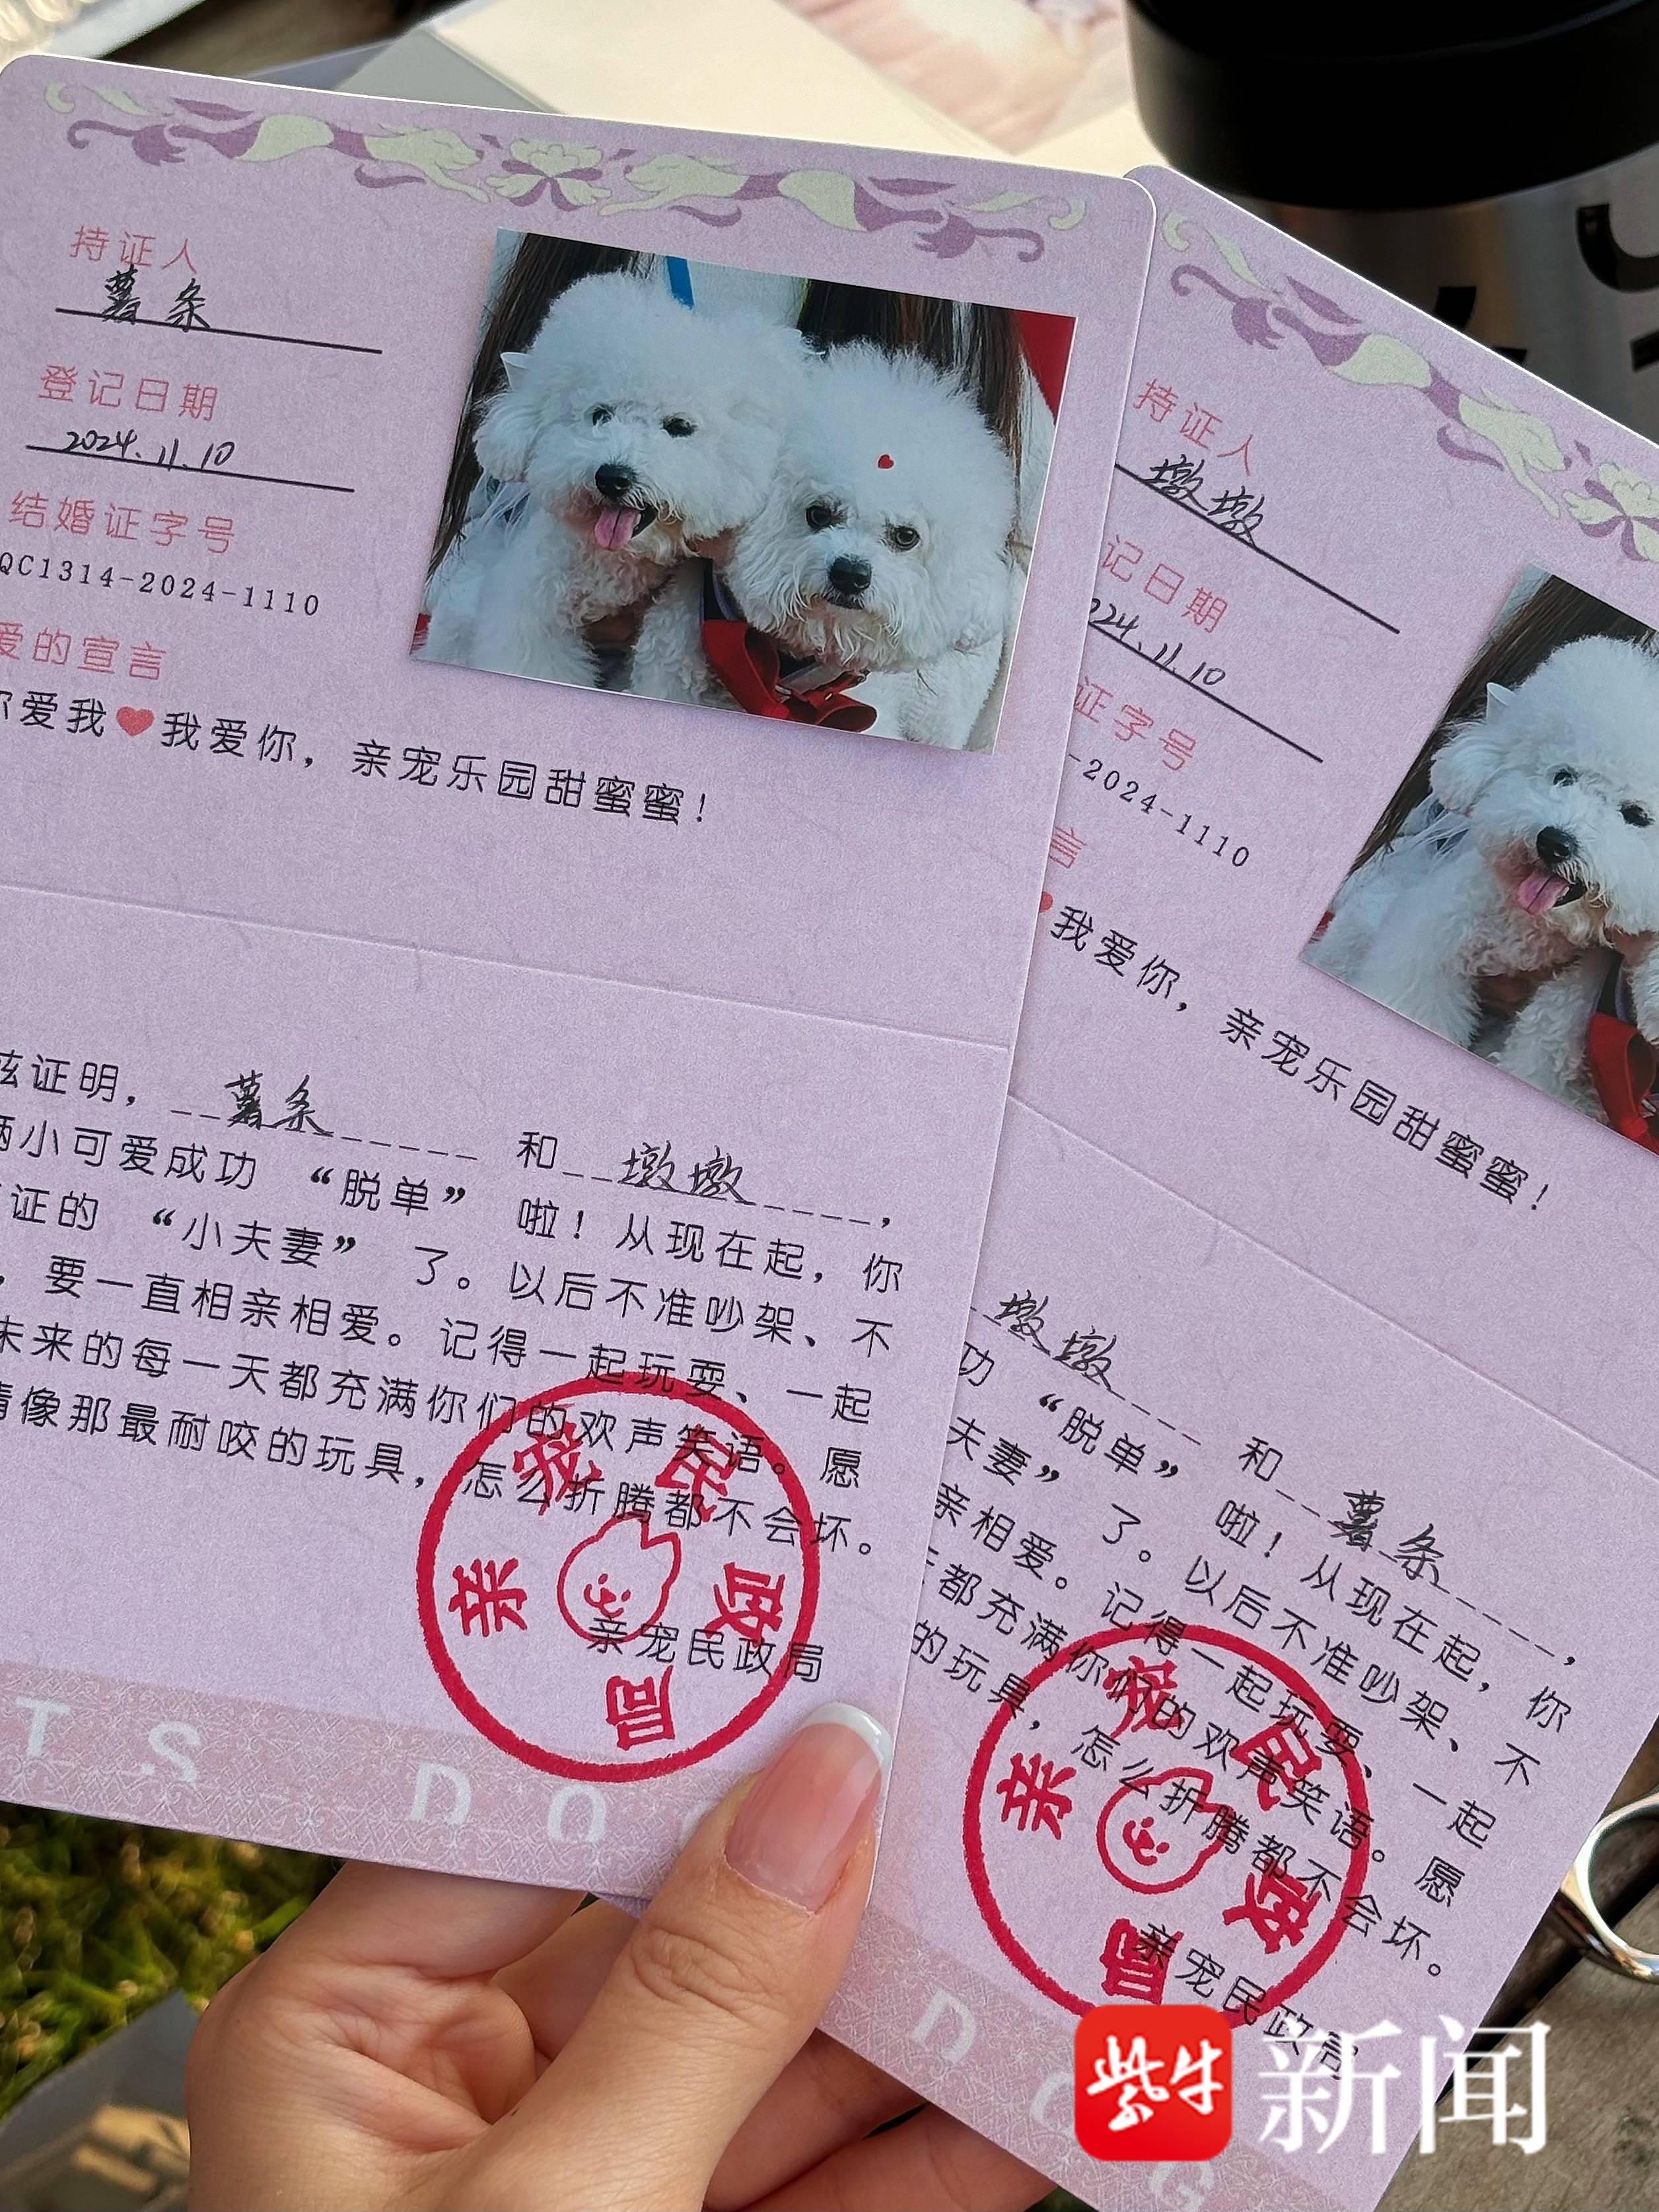 持证人
薯条
登记日期
2024.11.10
结婚证字号
QC1314-2024-1110
爱的宣言
你爱我❤我爱你，亲宠乐园甜蜜蜜！
兹证明，薯条 和 墩墩，
俩小可爱成功“脱单”啦！从现在起，你
证的“小夫妻”了。以后不准吵架、不
，要一直相亲相爱。记得一起玩耍、一起
未来的每一天都充满你们的欢声笑语。愿
情像那最耐咬的玩具，怎么折腾都不会坏。
亲宠民政局
亲宠民政局
TS DO
持证人
墩墩
记日期
024.11.10
证字号
-2024-1110
言
❤我爱你，亲宠乐园甜蜜蜜！
墩墩 和 薯条，
功“脱单”啦！从现在起，你
夫妻”了。以后不准吵架、不
亲相爱。记得一起玩耍、一起
都充满你们的欢声笑语。愿
的玩具，怎么折腾都不会坏。
亲宠民政局
亲宠民政局
D G
紫牛新闻